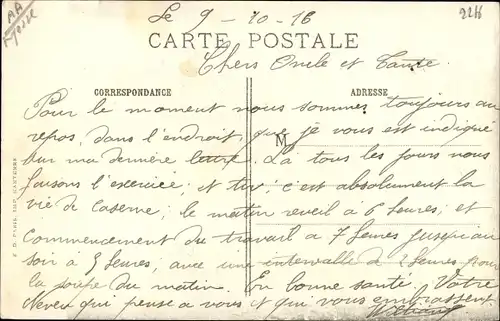 Le 9-10-16
2216
CARTE POSTALE
Chers Oncle et Tante.
CORRESPONDANCE
ADRESSE
M
Pour le moment nous sommes toujours au
repos, dans l'endroit, que je vous est indiqué
sur ma dernière lettre. Là tous les jours nous
faisons l'exercice; et tir; c'est absolument la
vie de caserne; le matin reveil à 6 heures; et
commencement du travail à 7 heures jusqu'au
soir à 5 heures, avec une intervalle de 2 heures pour
la soupe du matin. En bonne santé. Votre
Neveu qui pense a vous et qui vous embrassent.